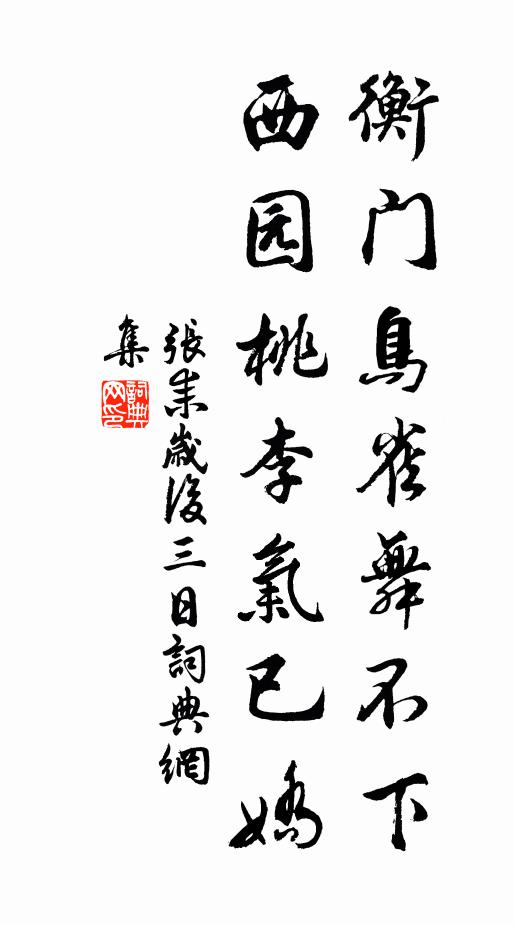 衡门鳥雀舞不下
西园桃李氣已嬌
張耒歲後三日詞典網
集
詞典
网印